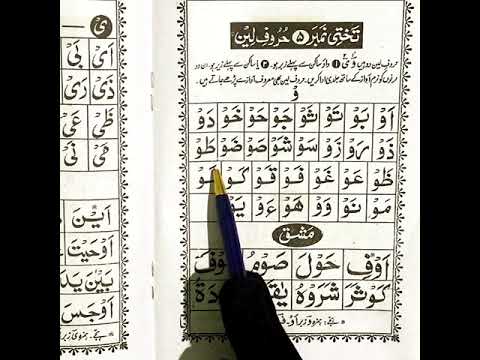 تختی نمبر ۵ حُرُوفِ لِین
حروفِ لین دو ہیں وْ یْ ۱ واؤ ساکن سے پہلے زبر ہو۔ ۲ یا ساکن سے پہلے زبر ہو۔ ان دو
حرفوں کو نرم آواز کے ساتھ جلدی ادا کریں۔ حروف لین بھی معروف آواز سے پڑھے جاتے ہیں۔
وْ
اَوْ بَوْ تَوْ ثَوْ جَوْ حَوْ خَوْ دَوْ
ذَوْ رَوْ زَوْ سَوْ شَوْ صَوْ ضَوْ طَوْ
ظَوْ عَوْ غَوْ فَوْ قَوْ كَوْ لَوْ
مَوْ نَوْ وَوْ هَوْ ءَوْ يَوْ
مشق
اَوْفِ حَوْلَ صَوْمُ
كَوْثَرَ شَرَوْهُ
ہجے: ہمزہ وَ زبر اَوْ
یْ
اَیْ بَیْ
ذَیْ رَیْ
ظَیْ عَیْ
اَيْنَ
اَوْحَيْتَ
بَيْنَ
اَوْجَسَ